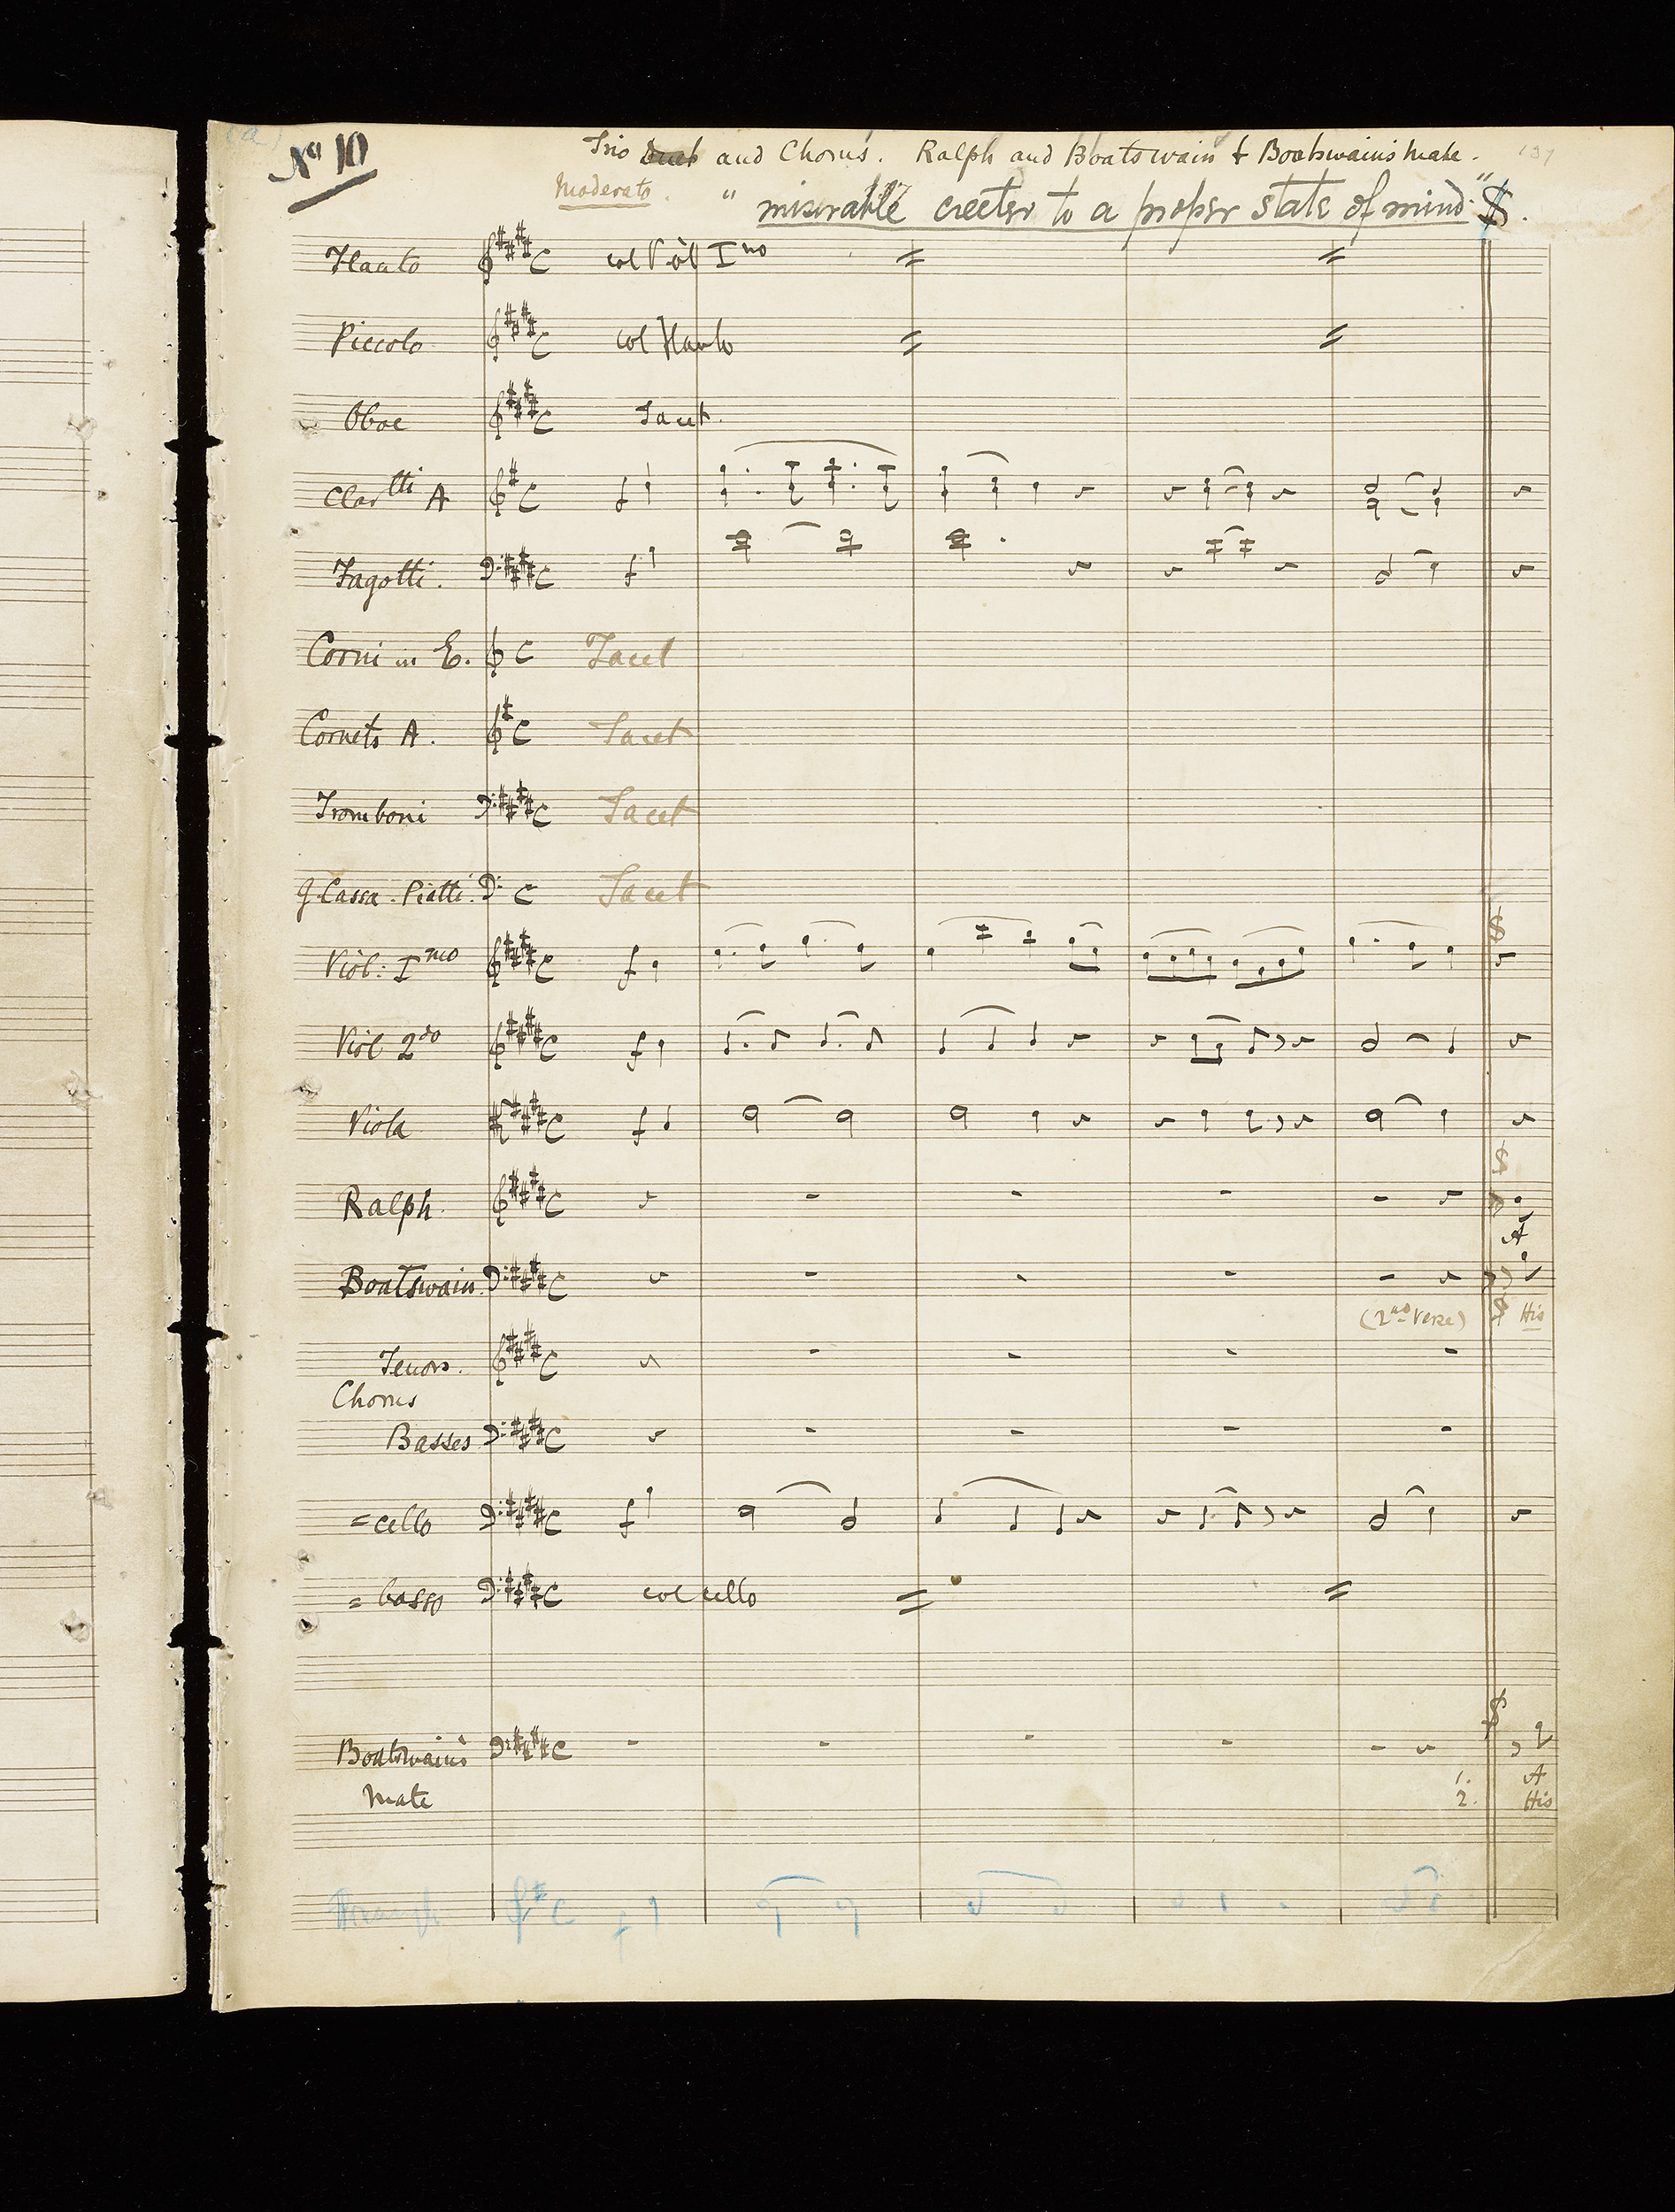 (a)
No 10
Trio Duet and Chorus. Ralph and Boatswain & Boatswain's Mate. 137
Moderato. "miserable creeter to a proper state of mind"
Flauto col Viol Imo
Piccolo col Flauto
Oboe Tacet.
Clartti A f
Fagotti. f
Corni in E. Tacet
Cornets A. Tacet
Tromboni Tacet
G. Cassa. Piatti. Tacet
Viol: Imo f
Viol 2do f
Viola f
Ralph.
A
Boatswain.
(2nd Verse) His
Tenors.
Chorus
Basses
=cello f
=basso col cello
Boatswain's
Mate
1. A
2. His
f